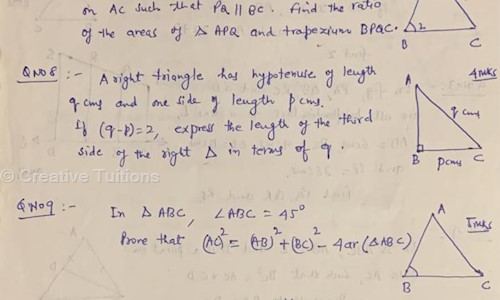 on AC such that PQ || BC. Find the ratio
of the areas of Δ APQ and trapezium BPQC.
2
B C
Q NO 8 :- A right triangle has hypotenuse of length
q cms and one side of length p cms.
If (q-p)=2, express the length of the third
side of the right Δ in terms of q.
4 mks
A
q cms
B p cms C
Creative Tuitions
Q NO 9 :- In Δ ABC, ∠ABC = 45°
Prove that (AC)² = (AB)² + (BC)² - 4ar(ΔABC)
5 mks
A
B C